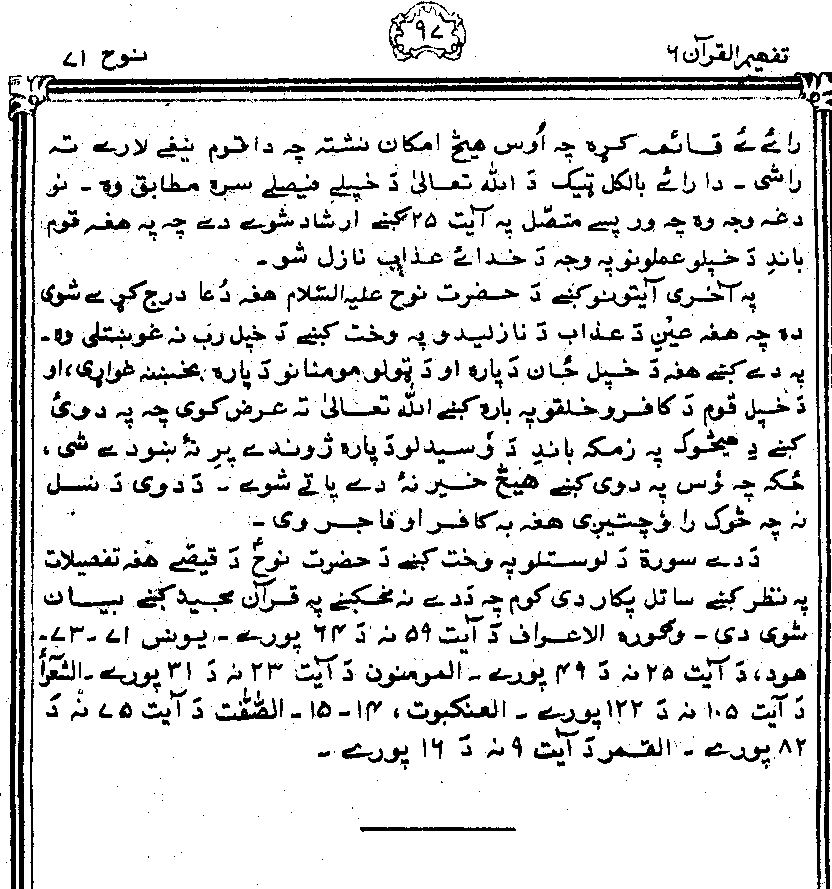 تفهيم القرآن ۶
۹۷
نوح ۷۱
رائے ئے قائمه کړه چه اُوس هيڅ امکان نشته چه دا قوم نيغے لارے ته
راشی - دا رائے بالکل ټيک دَ الله تعالیٰ دَ خپلے فيصلے سره مطابق وه - نو
دغه وجه وه چه ور پسے متصّل په آيت ۲۵ کښے ارشاد شوے دے چه په هغه قوم
باندِ دَ خپلو عملونو په وجه دَ خدائے عذاب نازل شو -
په آخری آيتونو کښے دَ حضرت نوح عليه السّلام هغه دُعا درج کړے شوی
ده چه هغه عينِ دَ عذاب دَ نازليدو په وخت کښے دَ خپل رب نه غوښتلی وه -
په دے کښے هغه دَ خپل ځان دَ پاره او دَ ټولو مومنانو دَ پاره بخښنه غواړی، او
دَ خپل قوم دَ کافرو خلقو په باره کښے الله تعالیٰ ته عرض کوی چه په دوئ
کښے دِ هيڅوک په زمکه باندِ دَ وَسيدلو دَ پاره ژوندے پرِ نۀ ښودے شی،
ځکه چه وُس په دوی کښے هيڅ خير نۀ دے پاتے شوے - دَ دوی دَ نسل
نه چه څوک را وُچتيږی هغه به کافر او فاجر وی -
دَ دے سورة دَ لوستلو په وخت کښے دَ حضرت نوحؑ دَ قيصے هغه تفصيلات
په نظر کښے ساتل پکار دی کوم چه دَ دے نه مخکښے په قرآن مجيد کښے بيان
شوی دی - وګوره الاعراف دَ آيت ۵۹ نه دَ ۶۴ پورے - يونس ۷۱ - ۷۳-
هود، دَ آيت ۲۵ نه دَ ۴۹ پورے - المومنون دَ آيت ۲۳ نه دَ ۳۱ پورے - الشّعرآء
دَ آيت ۱۰۵ نه دَ ۱۲۲ پورے - العنکبوت، ۱۴ - ۱۵ - الصّٰفّٰت دَ آيت ۷۵ نه دَ
۸۲ پورے - القمر دَ آيت ۹ نه دَ ۱۶ پورے -